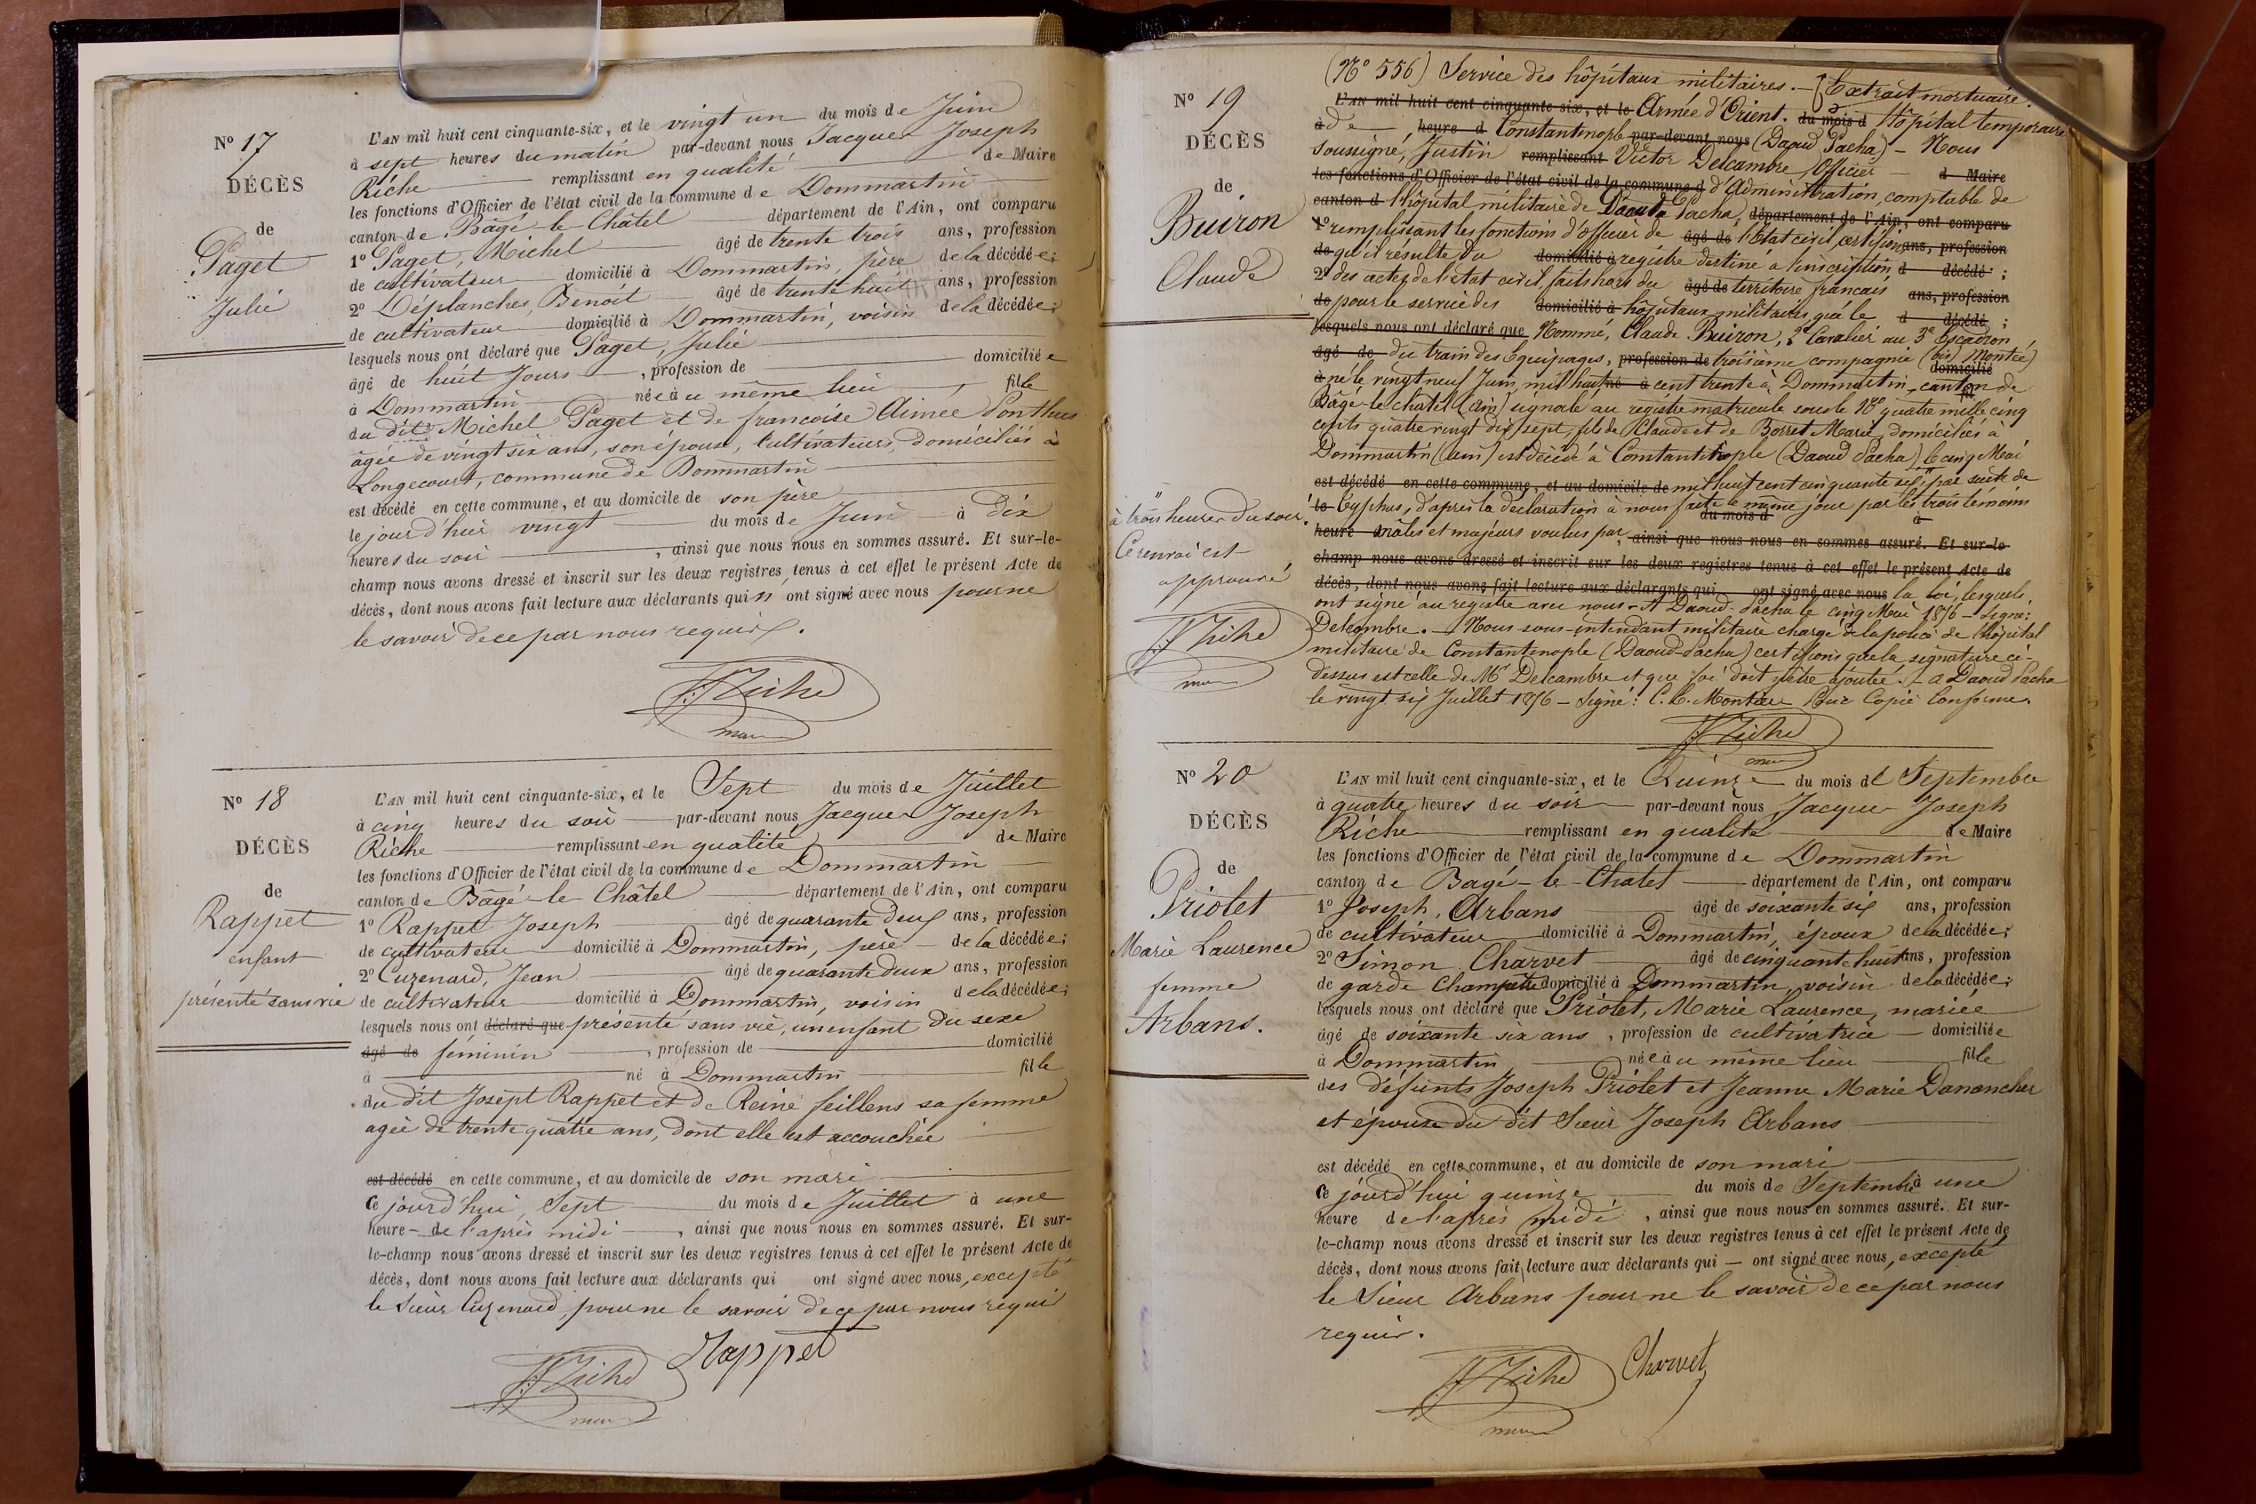 Nº 17
DÉCÈS
de
Paget
Julie
L'AN mil huit cent cinquante-six, et le vingt un du mois de Juin
à sept heures du matin par-devant nous Jacques Joseph
Riche remplissant en qualité de Maire
les fonctions d'Officier de l'état civil de la commune de Dommartin
canton de Bâgé-le-Châtel département de l'Ain, ont comparu
1º Paget, Michel âgé de trente trois ans, profession
de cultivateur domicilié à Dommartin, père de la décédée;
2º Déplanches, Benoît âgé de trente huit ans, profession
de cultivateur domicilié à Dommartin, voisin de la décédée;
lesquels nous ont déclaré que Paget, Julie
âgé de huit Jours, profession de domiciliée
à Dommartin née au même lieu, fille
du dit Michel Paget et de françoise Aimée Ponthus
âgée de vingt six ans, son épouse, cultivateurs, domiciliés à
Longecourt, commune de Dommartin
est décédé en cette commune, et au domicile de son père
le jourd'hui vingt du mois de Juin à dix
heures du soir, ainsi que nous nous en sommes assuré. Et sur-le-
champ nous avons dressé et inscrit sur les deux registres tenus à cet effet le présent Acte de
décès, dont nous avons fait lecture aux déclarants qui n'ont signé avec nous pour ne
le savoir de ce par nous requis.
JJ Riche
maire
Nº 18
DÉCÈS
de
Rappet
enfant
présenté sans vie
L'AN mil huit cent cinquante-six, et le Sept du mois de Juillet
à cinq heures du soir par-devant nous Jacques Joseph
Riche remplissant en qualité de Maire
les fonctions d'Officier de l'état civil de la commune de Dommartin
canton de Bâgé-le-Châtel département de l'Ain, ont comparu
1º Rappet Joseph âgé de quarante deux ans, profession
de cultivateur domicilié à Dommartin, père de la décédée;
2º Cuzenard, Jean âgé de quarante deux ans, profession
de cultivateur domicilié à Dommartin, voisin de la décédée;
lesquels nous ont déclaré que présenté sans vie, un enfant du sexe
âgé de féminin, profession de domicilié
à né à Dommartin fille
du dit Joseph Rappet et de Reine feillens sa femme
agée de trente quatre ans, dont elle est accouchée
est décédé en cette commune, et au domicile de son mari
Ce jourd'hui, Sept du mois de Juillet à une
heure de l'après midi, ainsi que nous nous en sommes assuré. Et sur-
le-champ nous avons dressé et inscrit sur les deux registres tenus à cet effet le présent Acte de
décès, dont nous avons fait lecture aux déclarants qui ont signé avec nous, excepté
le Sieur Cuzenard, pour ne le savoir de ce par nous requis
JJ Riche Rappet
maire
Nº 19
DÉCÈS
de
Buiron
Claude
(Nº 556) Service des hôpitaux militaires. — Extrait mortuaire.
L'AN mil huit cent cinquante-six, et le Armée d'Orient. du mois d Hôpital temporaire
à de heure d Constantinople par-devant nous (Daoud Pacha) — Nous
soussigné, Justin remplissant Victor Delcambre, Officier d Maire
les fonctions d'Officier de l'état civil de la commune d d'Administration, comptable de
canton d l'hôpital militaire de Daoud Pacha, département de l'Ain, ont comparu
1º remplissant les fonctions d'officier de âgé de l'état civil, certifions ans, profession
de qu'il résulte du domicilié à registre destiné a l'inscription d décédé;
2º des actes de l'état civil, faits hors du âgé de territoire français ans, profession
de pour le service des domicilié à hôpitaux militaires, que le d décédé;
lesquels nous ont déclaré que Nommé, Claude Buiron, 2e Cavalier au 3e Escadron,
âgé de du train des Equipages, profession de troisième compagnie (bis) Montée)
domicilié
à né le vingt neuf Juin, mil huit né à cent trente à Dommartin, canton de
fil
Bâgé-le-chatel (ain) signalé au registre matricule sous le Nº quatre mille cinq
cents quatre vingt dix sept, fils de Claude et de Borret Marie, domiciliés à
Dommartin (ain) est décédé à Constantinople (Daoud Pacha), le cinq Mai
est décédé en cette commune, et au domicile de mil huit cent cinquante six, par suite de
le typhus, d'après la déclaration à nous faite le même jour par les trois témoins
du mois d à
heure mâles et majeurs voulus par ainsi que nous nous en sommes assuré. Et sur-le
champ nous avons dressé et inscrit sur les deux registres tenus à cet effet le présent Acte de
décès, dont nous avons fait lecture aux déclarants qui ont signé avec nous la loi, lesquels
ont signé au registre avec nous. A Daoud-Pacha le cinq Mai 1856 — Signé:
Delcambre. — Nous sous-intendant militaire chargé de la police de l'hôpital
militaire de Constantinople (Daoud-Pacha) certifions que la signature ci-
dessus est celle de Mr Delcambre et que foi doit y être ajoutée. — A Daoud Pacha
le vingt six Juillet 1856 — Signé: Pour Copie Conforme.
à trois heures du soir.
Ce renvoi est
approuvé
JJ Riche
maire
JJ Riche
maire
Nº 20
DÉCÈS
de
Priolet
Marie Laurence
femme
Arbans.
L'AN mil huit cent cinquante-six, et le Quinze du mois de Septembre
à quatre heures du soir par-devant nous Jacques Joseph
Riche remplissant en qualité de Maire
les fonctions d'Officier de l'état civil de la commune de Dommartin
canton de Bagé-le-Chatel département de l'Ain, ont comparu
1º Joseph, Arbans âgé de soixante six ans, profession
de cultivateur domicilié à Dommartin, époux de la décédée;
2º Simon Charvet âgé de cinquante huit ans, profession
de garde Champêtre domicilié à Dommartin, voisin de la décédée;
lesquels nous ont déclaré que Priolet, Marie Laurence, mariée
âgé de soixante six ans, profession de cultivatrice domiciliée
à Dommartin née au même lieu fille
des défunts Joseph Priolet et Jeanne Marie Danancher
et épouse du dit Sieur Joseph Arbans
est décédé en cette commune, et au domicile de son mari
Ce jourd'hui quinze du mois de Septembre à une
heure de l'après midi, ainsi que nous nous en sommes assuré. Et sur-
le-champ nous avons dressé et inscrit sur les deux registres tenus à cet effet le présent Acte de
décès, dont nous avons fait lecture aux déclarants qui — ont signé avec nous, excepté
le Sieur Arbans pour ne le savoir de ce par nous
requis.
JJ Riche Charvet
maire